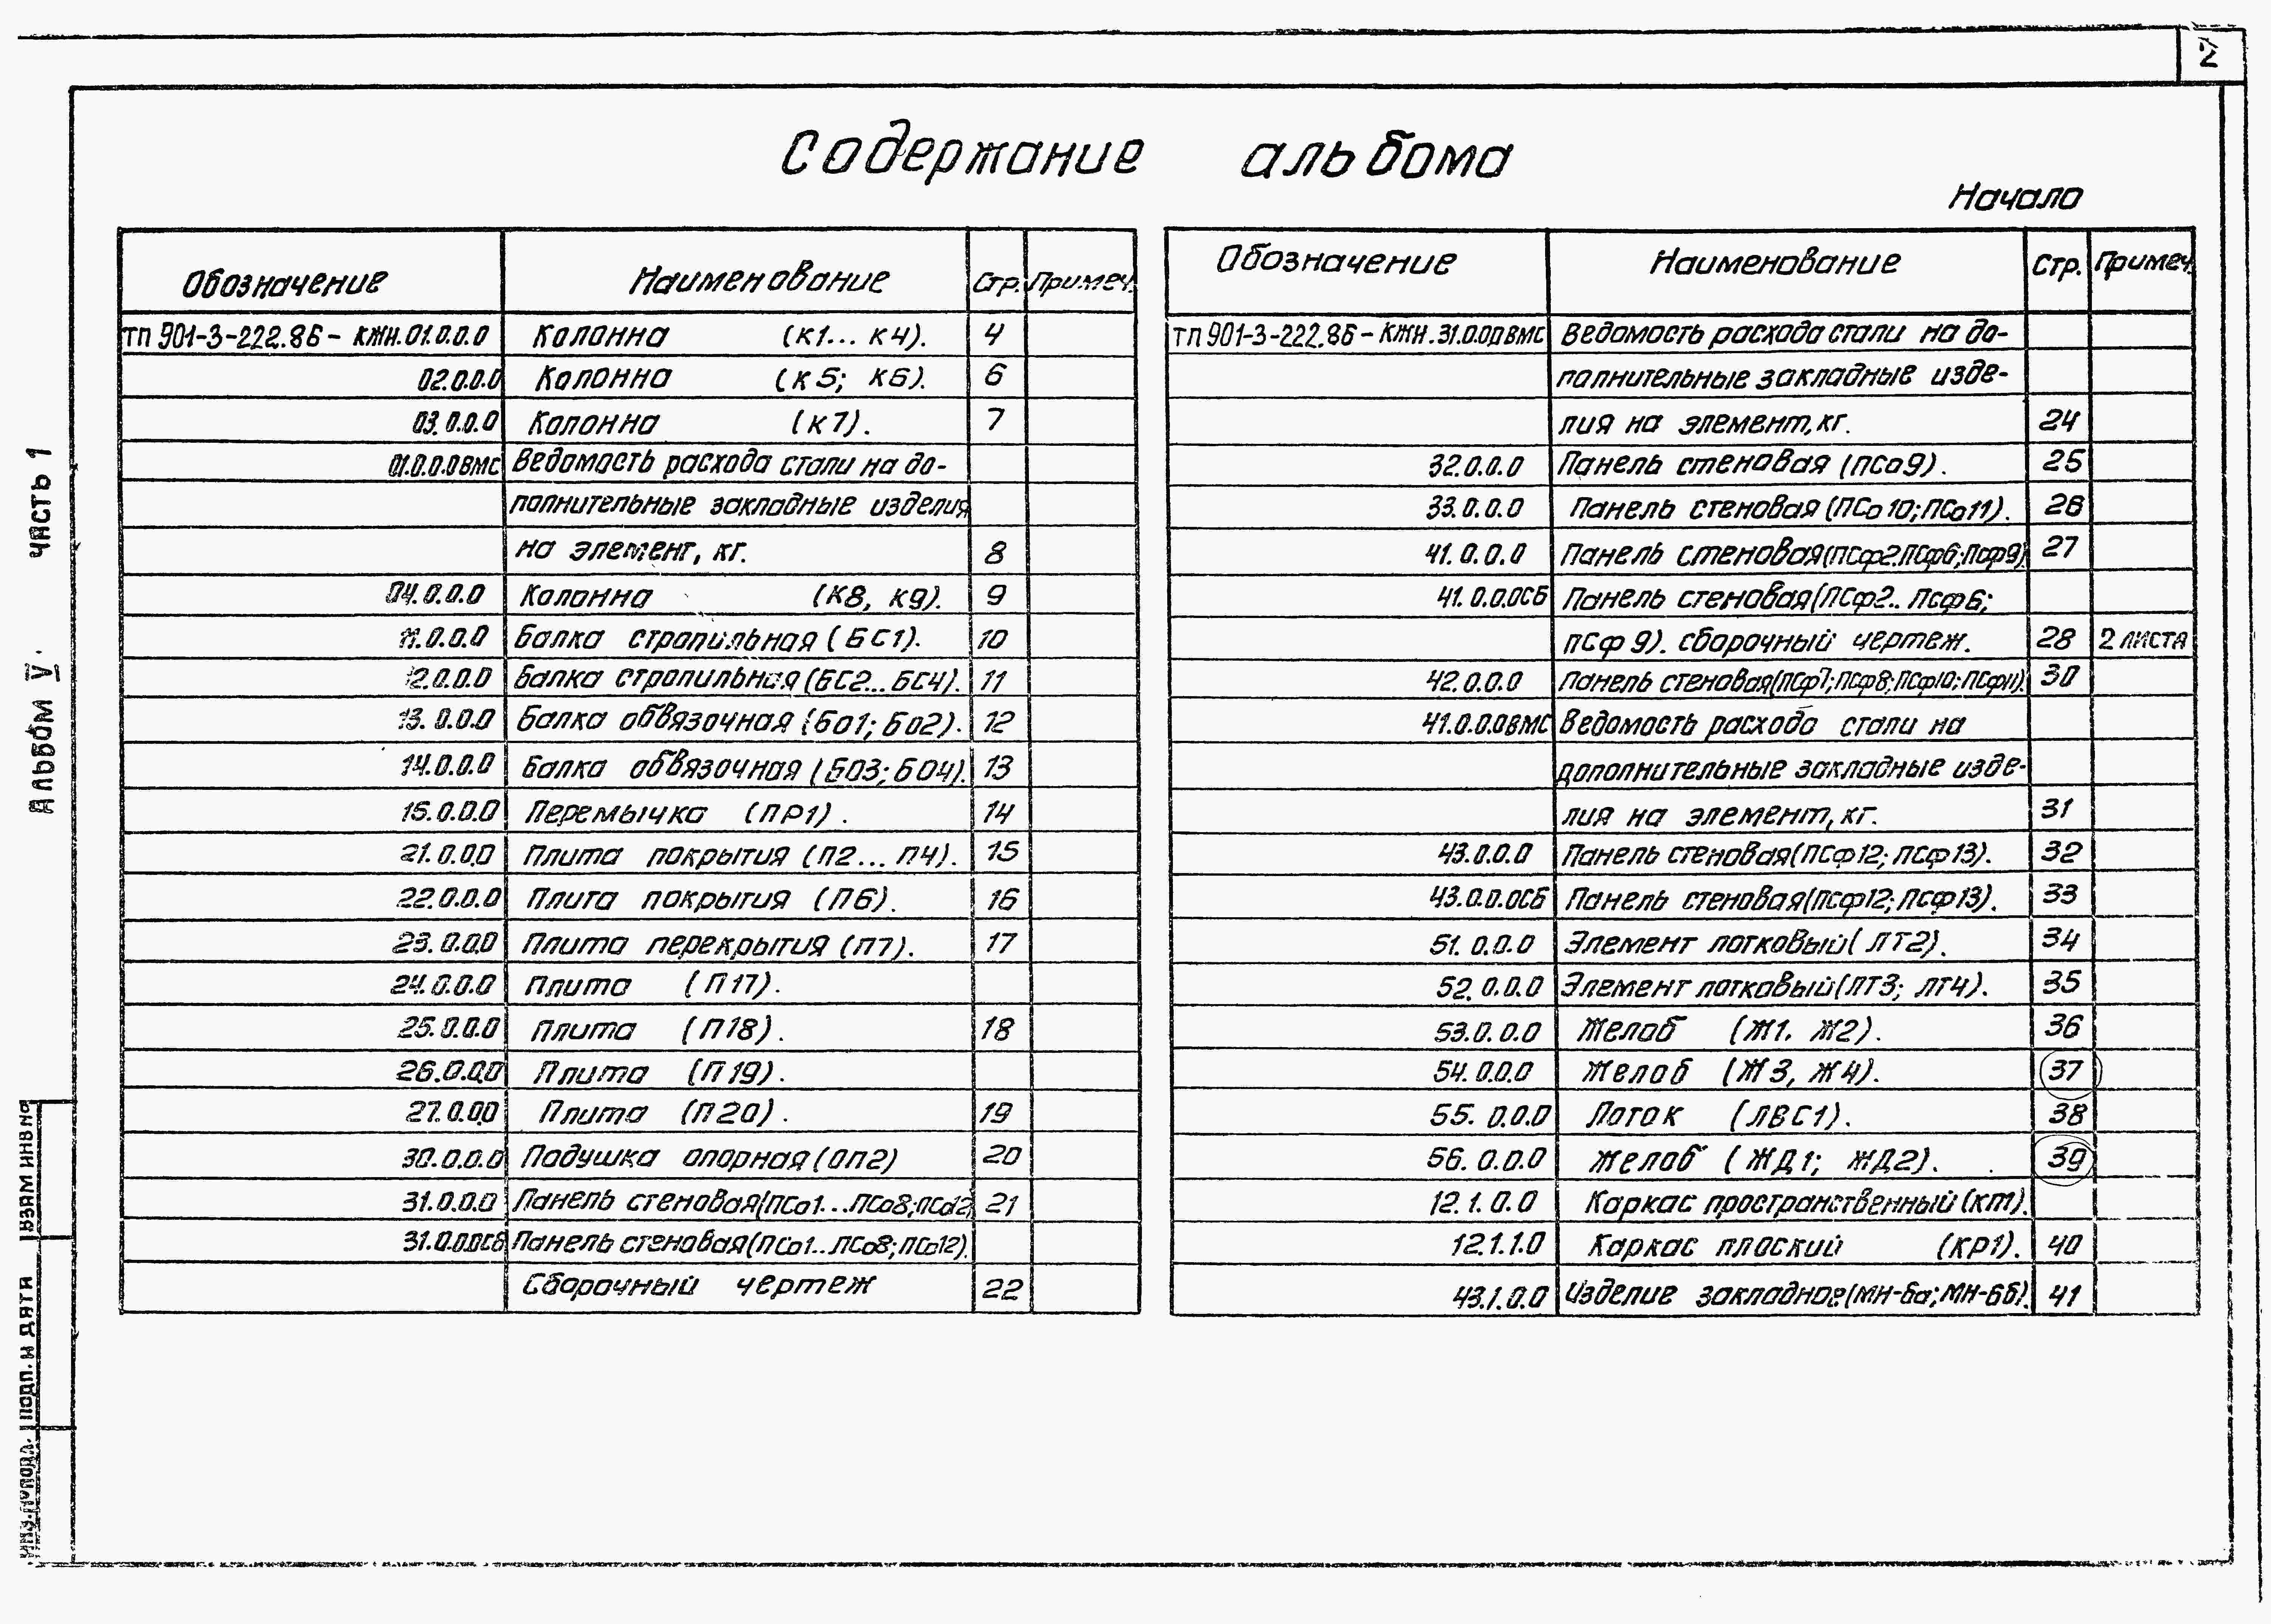 2
Содержание альбома
Начало
Обозначение Наименование Стр. Примеч.
ТП 901-3-222.86 - КЖН.01.0.0.0 Колонна (К1... К4). 4
02.0.0.0 Колонна (К5; К6). 6
03.0.0.0 Колонна (К7). 7
01.0.0.0ВМС Ведомость расхода стали на до-
полнительные закладные изделия
на элемент, кг. 8
04.0.0.0 Колонна (К8, К9). 9
11.0.0.0 Балка стропильная (БС1). 10
12.0.0.0 Балка стропильная (БС2... БС4). 11
13.0.0.0 Балка обвязочная (БО1; БО2). 12
14.0.0.0 Балка обвязочная (БО3; БО4). 13
15.0.0.0 Перемычка (ПР1). 14
21.0.0.0 Плита покрытия (П2... П4). 15
22.0.0.0 Плита покрытия (П6). 16
23.0.0.0 Плита перекрытия (П7). 17
24.0.0.0 Плита (П17).
25.0.0.0 Плита (П18). 18
26.0.0.0 Плита (П19).
27.0.0.0 Плита (П20). 19
30.0.0.0 Подушка опорная (ОП2) 20
31.0.0.0 Панель стеновая(ПСо1...ПСо8;ПСо12) 21
31.0.0.0СБ Панель стеновая(ПСо1..ПСо8;ПСо12).
Сборочный чертеж 22
Обозначение Наименование Стр. Примеч.
ТП 901-3-222.86 - КЖН.31.0.0.0ВМС Ведомость расхода стали на до-
полнительные закладные изде-
лия на элемент, кг. 24
32.0.0.0 Панель стеновая (ПСо9). 25
33.0.0.0 Панель стеновая (ПСо10;ПСо11). 26
41.0.0.0 Панель стеновая(ПСф2..ПСф6;ПСф9) 27
41.0.0.0СБ Панель стеновая(ПСф2.. ПСф6;
ПСф9). сборочный чертеж. 28 2 листа
42.0.0.0 Панель стеновая(ПСф7;ПСф8;ПСф10;ПСф11) 30
41.0.0.0ВМС Ведомость расхода стали на
дополнительные закладные изде-
лия на элемент, кг. 31
43.0.0.0 Панель стеновая(ПСф12; ПСф13). 32
43.0.0.0СБ Панель стеновая(ПСф12; ПСф13). 33
51.0.0.0 Элемент лотковый( ЛТ2). 34
52.0.0.0 Элемент лотковый(ЛТ3; ЛТ4). 35
53.0.0.0 Желоб (Ж1. Ж2). 36
54.0.0.0 Желоб (Ж3, Ж4). 37
55.0.0.0 Лоток (ЛВС1). 38
56.0.0.0 Желоб (ЖД1; ЖД2). 39
12.1.0.0 Каркас пространственный (КП).
12.1.1.0 Каркас плоский (КР1). 40
43.1.0.0 Изделие закладное(МН-6а; МН-6б). 41
Альбом V часть 1
Взам инв №
Подп. и дата
Инв.№ подл.